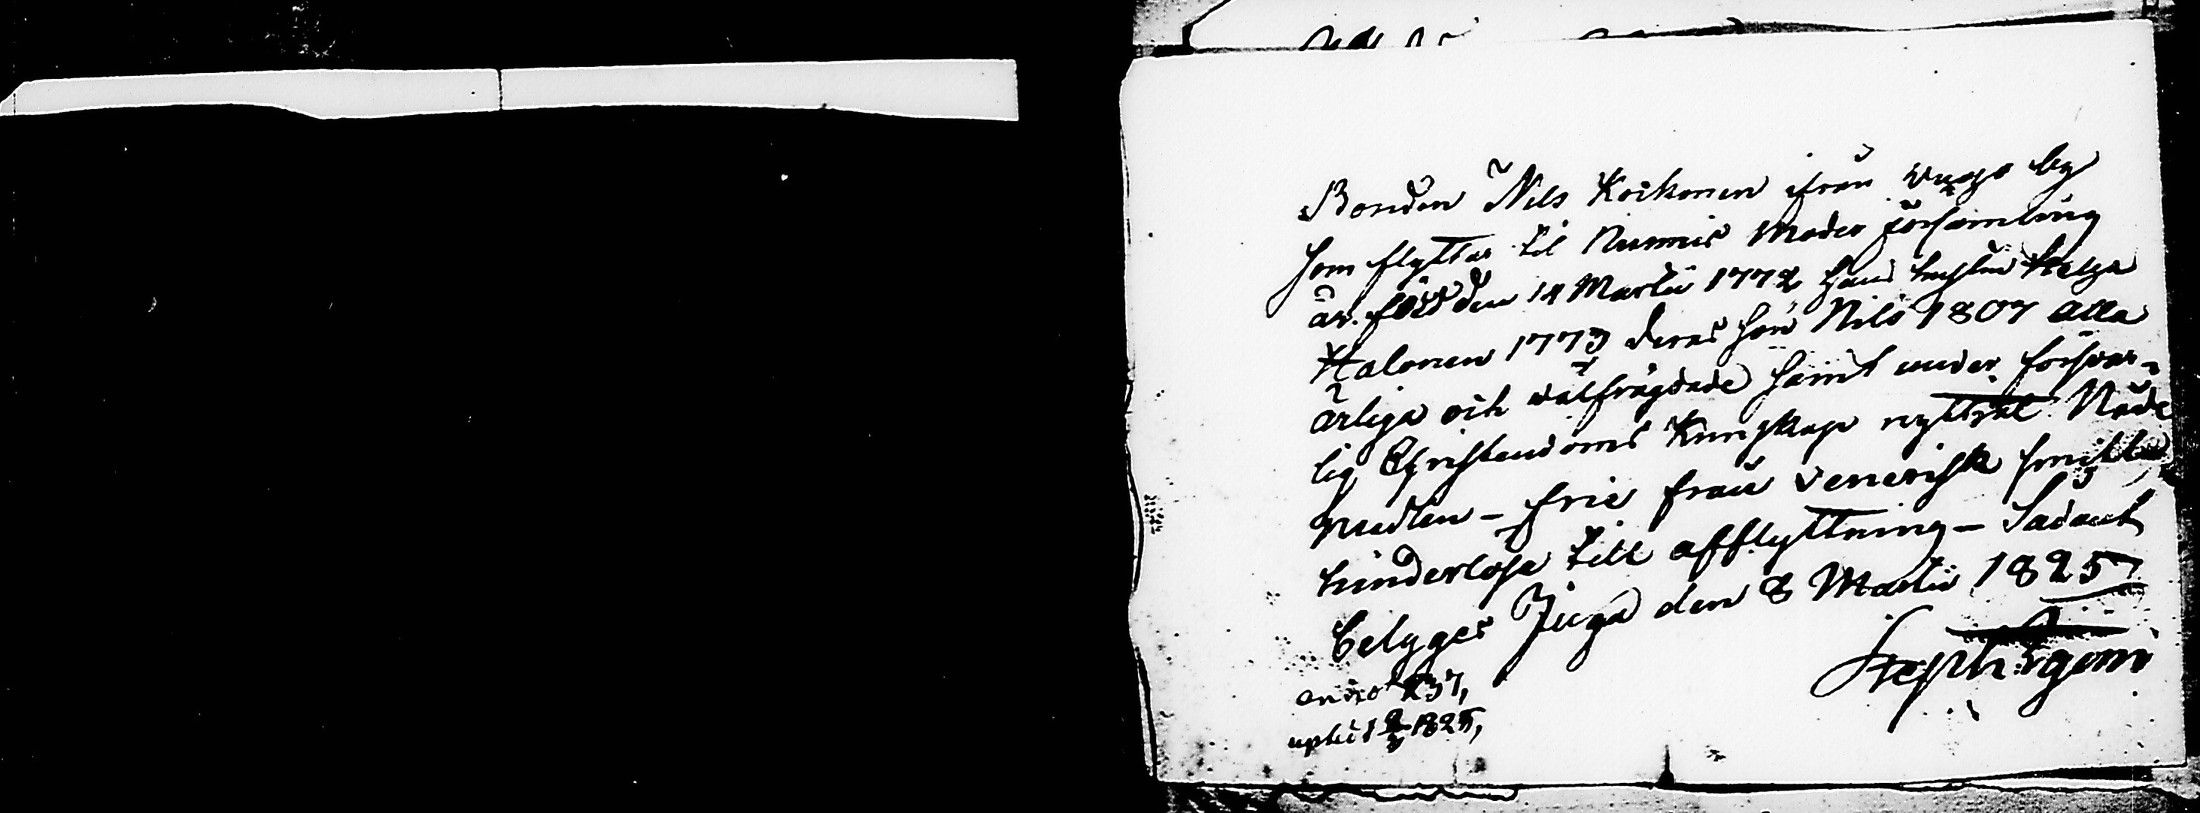 Bonden Nils Koikonen ifrån by
som flyttar til Nurmis Moder församling
är född den 14 Martii 1772 hans hustru Helga
Halonen 1773 deras son Nils 1807 alla
ärliga och välfrägdade samt under försvar-
lig Christendoms Kunskap nyttjat Nåde
medlen - frie från venerisk smitta,
hinderlösa till afflyttning - Sådant
betyges Juga den 8 Martii 1825
Steph:
237,
1825,